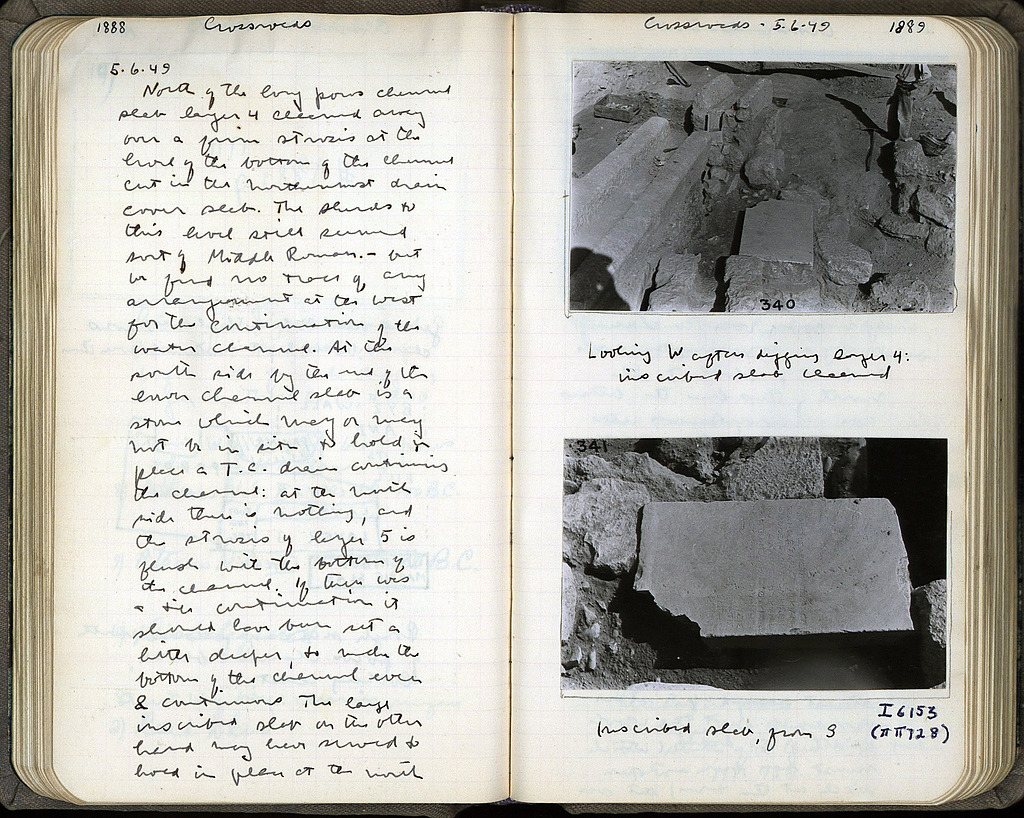 1888 Crossroads
5.6.49
North of the long poros channel
slab layer 4 cleaned away
over a firm strosis at the
level of the bottom of the channel
cut in the northernmost drain
cover slab. The sherds to
this level still seemed
sort of Middle Roman. - but
we find no trace of any
arrangement at the west
for the continuation of the
water channel. At the
south side by the end of the
channel slab is a
stone which may or may
not be in situ to hold in
place a T.C. drain continuing
the channel: at the north
side there is nothing, and
the strosis of layer 5 is
flush with the bottom of
the channel. If there was
a tile continuation it
should have been set a
little deeper, to make the
bottom of the channel even
& continuous. The large
inscribed slab on the other
hand may have served to
hold in place at the north
Crossroads - 5.6.49 1889
340
Looking W after digging layer 4:
inscribed slab cleaned
341
Inscribed slab, from S
I 6153
(ΠΠ728)